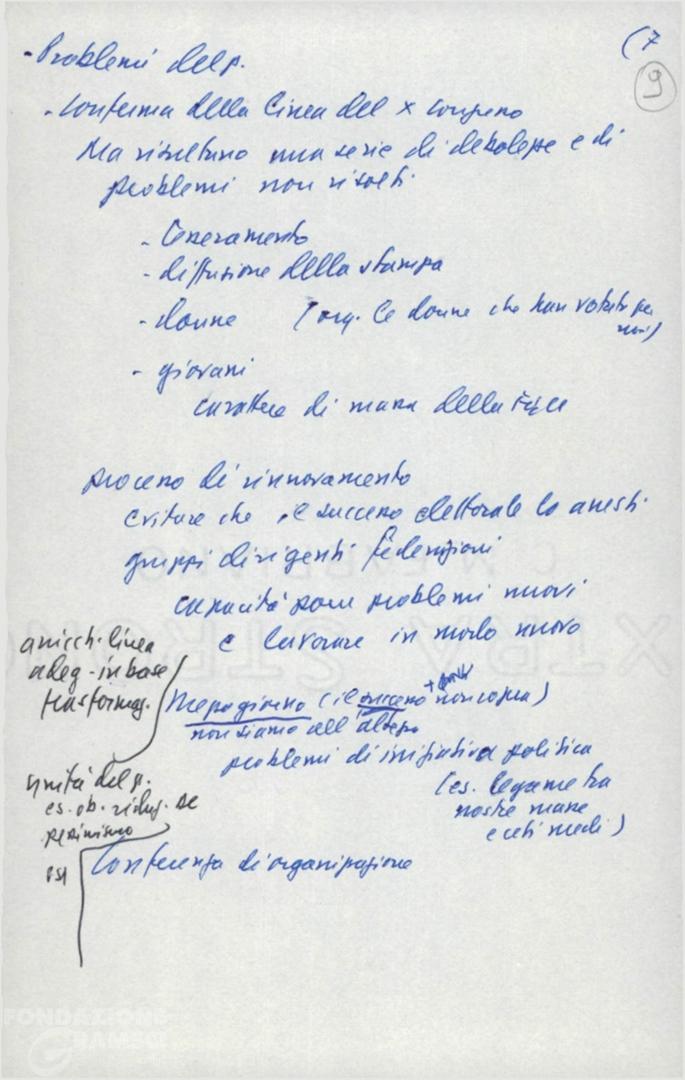 (7
9
- Problemi del p.
- Conferma della linea del X congresso
Ma risultano una serie di debolezze e di
problemi non risolti
- tesseramento
- diffusione della stampa
- donne (org. le donne che han votato per
noi)
- giovani
carattere di massa della FGCI
processo di rinnovamento
evitare che il successo elettorale lo arresti
gruppi dirigenti federazioni
capacità porre problemi nuovi
e lavorare in modo nuovo
arricch. linea
adeg. in base
trasformaz.
Mezzogiorno (il successo + non copra)
non siamo all'altezza
problemi di iniziativa politica
(es. legame tra
nostre masse
e ceti medi)
unità del p.
es. ob.
pessimismo
PSI
Conferenza di organizzazione
FONDAZIONE
GRAMSCI